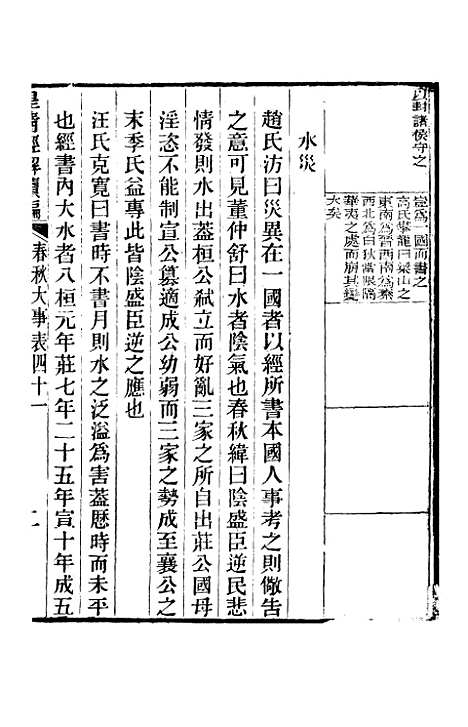 內封諸侯守之
豈爲一國而書之
高氏攀龍曰梁山之
東南爲晉西南爲秦
西北爲白狄當限隔
華夷之處而崩其變
大矣
水災
趙氏汸曰災異在一國者以經所書本國人事考之則儆告
之意可見董仲舒曰水者陰氣也春秋緯曰陰盛臣逆民悲
情發則水出葢桓公弒立而好亂三家之所自出莊公國母
淫恣不能制宣公篡適成公幼弱而三家之勢成至襄公之
末季氏益專此皆陰盛臣逆之應也
汪氏克寬曰書時不書月則水之泛溢爲害葢歷時而未平
也經書內大水者八桓元年莊七年二十五年宣十年成五
皇清經解續編
春秋大事表四十一
二